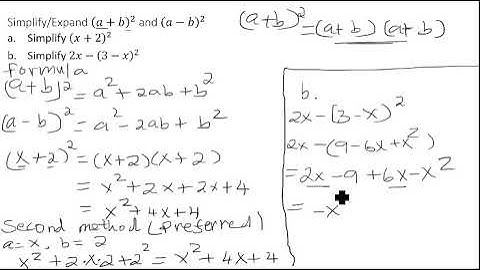 Simplify/Expand (a + b)² and (a − b)²
a. Simplify (x + 2)²
b. Simplify 2x − (3 − x)²
(a+b)² = (a+b) (a+b)
formula
(a+b)² = a² + 2ab + b²
(a-b)² = a² - 2ab + b²
(x+2)² = (x+2)(x+2)
= x² + 2x + 2x + 4
= x² + 4x + 4
Second method (preferred)
a = x, b = 2
x² + 2·x·2 + 2² = x² + 4x + 4
b.
2x - (3-x)²
2x - (9 - 6x + x²)
= 2x - 9 + 6x - x²
= -x